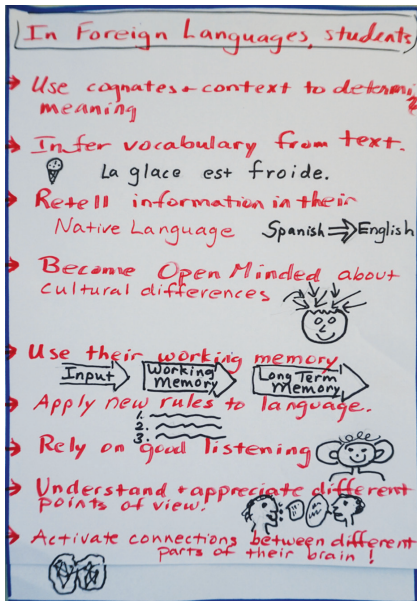 In Foreign Languages, students
Use cognates + context to determi
meaning
Infer vocabulary from text.
La glace est froide.
Retell information in their
Native Language Spanish ⇒ English
Become Open Minded about
cultural differences
Use their working memory
Input Working Memory Long Term Memory
Apply new rules to language.
1.
2.
3.
Rely on good listening
Understand + appreciate different
points of view!
Activate connections between different
parts of their brain!